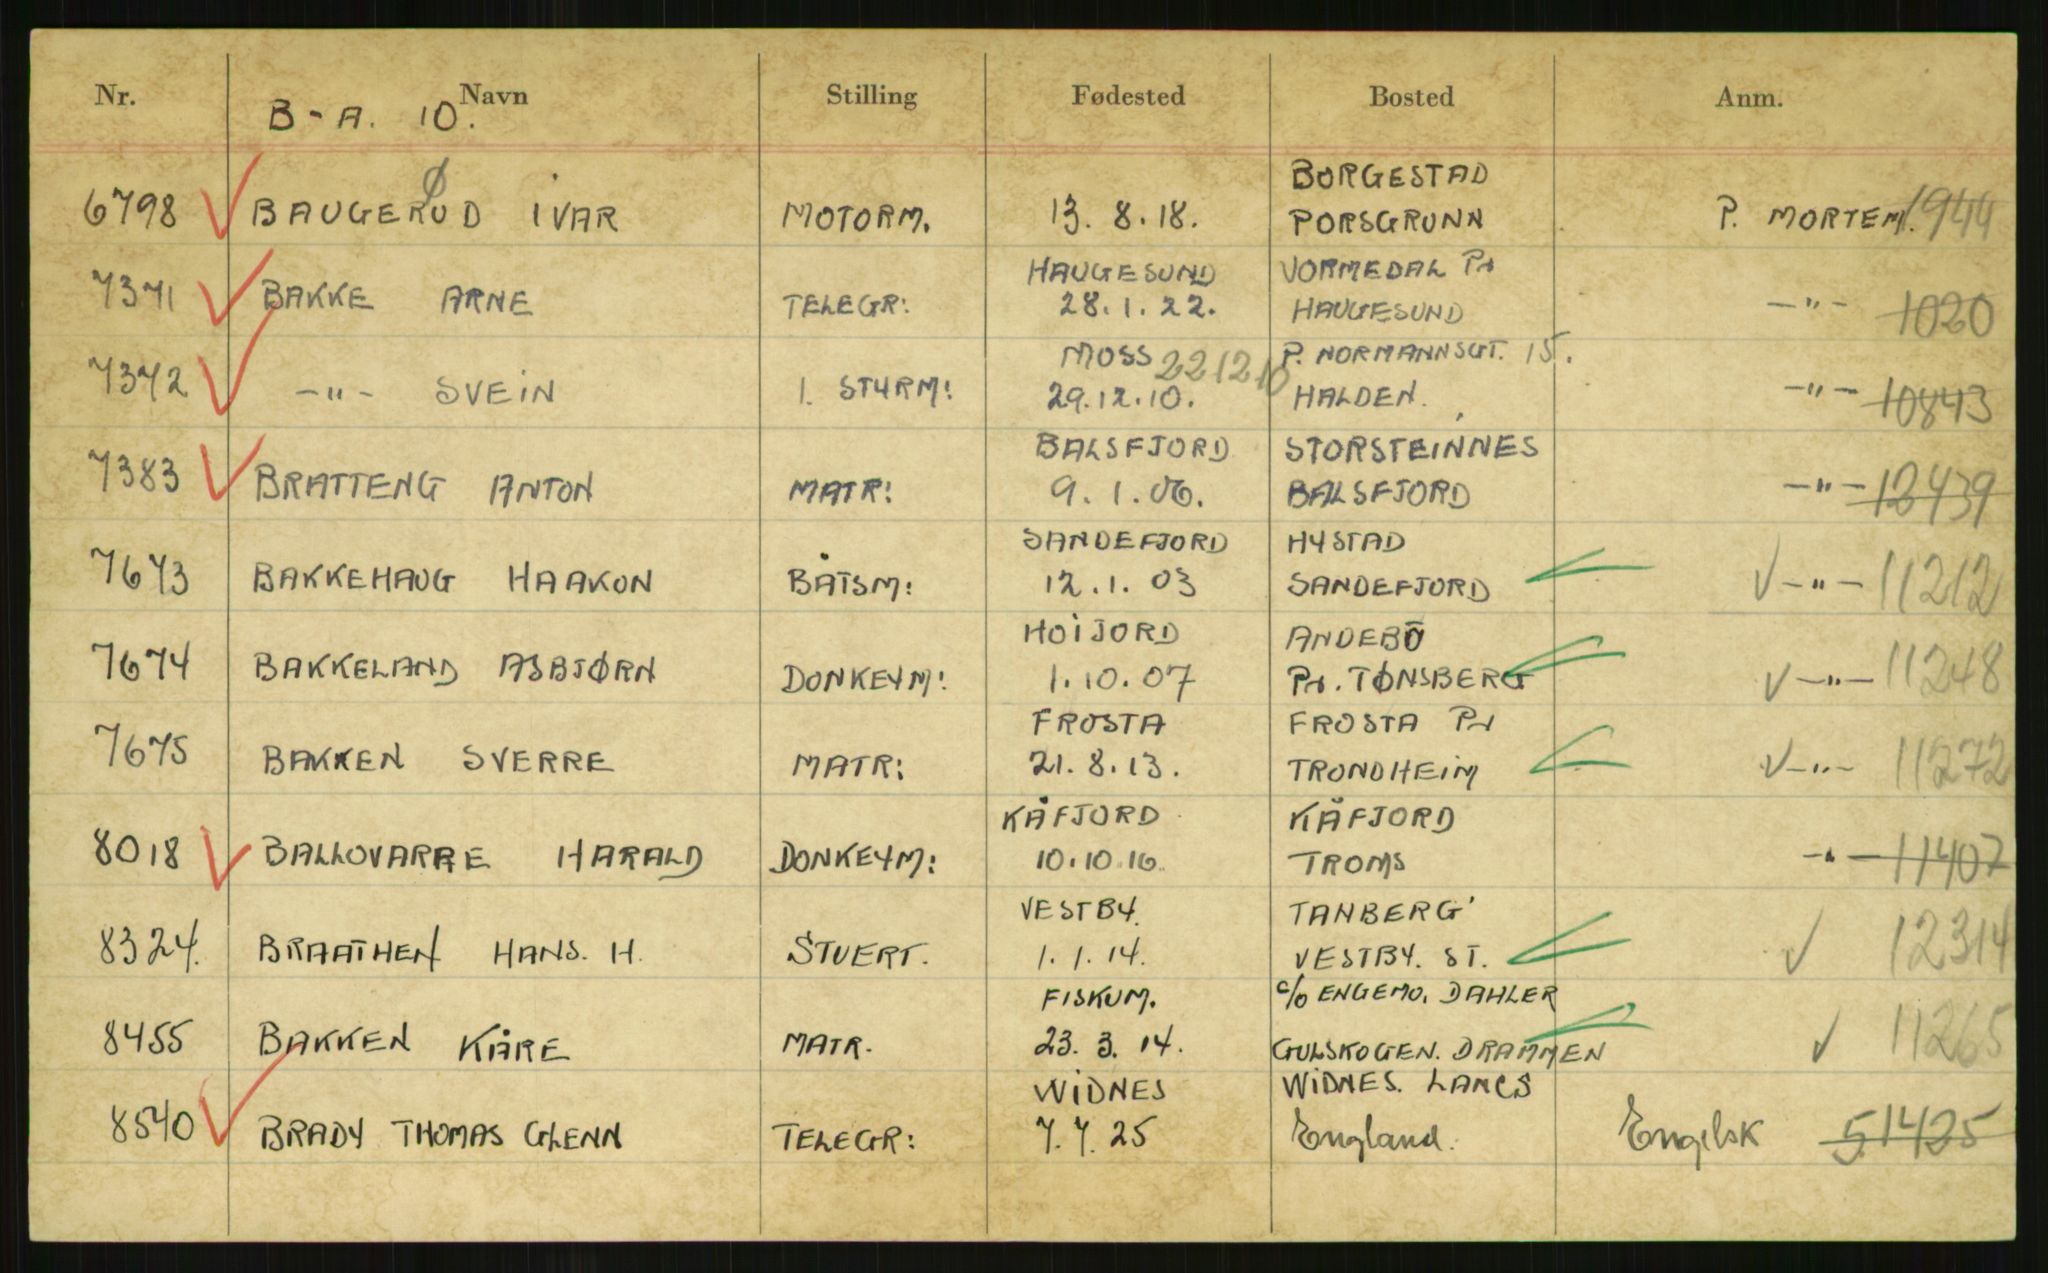 Nr. Navn Stilling Fødested Bosted Anm.
B-A. 10.
BORGESTAD
6798 BAUGERUD IVAR MOTORM. 13.8.18. PORSGRUNN P. MORTEM. 1944
Ø
HAUGESUND VORMEDAL Pr
7371 BAKKE ARNE TELEGR: 28.1.22. HAUGESUND -"- 1020
MOSS 221210 P. NORMANNSGT. 15.
7372 -"- SVEIN 1. STYRM: 29.12.10. HALDEN. -"- 10843
BALSFJORD STORSTEINNES
7383 BRATTENG ANTON MATR: 9.1.06. BALSFJORD -"- 12439
SANDEFJORD HYSTAD
7673 BAKKEHAUG HAAKON BÅTSM: 12.1.03 SANDEFJORD ✓ -"- 11212
HOIJORD ANDEBÖ
7674 BAKKELAND ASBJØRN DONKEYM: 1.10.07 Pr. TØNSBERG ✓ -"- 11248
FROSTA FROSTA Pr
7675 BAKKEN SVERRE MATR: 21.8.13. TRONDHEIM ✓ -"- 11272
KÅFJORD KÅFJORD
8018 BALLOVARRE HARALD DONKEYM: 10.10.16. TROMS -"- 11407
VESTBY. TANBERG
8324. BRAATHEN HANS. H. STUERT. 1.1.14. VESTBY. ST. ✓ 12314
FISKUM. c/o ENGEMO. DAHLER
8455 BAKKEN KÅRE MATR. 23.3.14. GULSKOGEN. DRAMMEN ✓ 11265
WIDNES WIDNES. LANCS
8540 BRADY THOMAS GLENN TELEGR: 7.7.25 England. Engelsk 51425